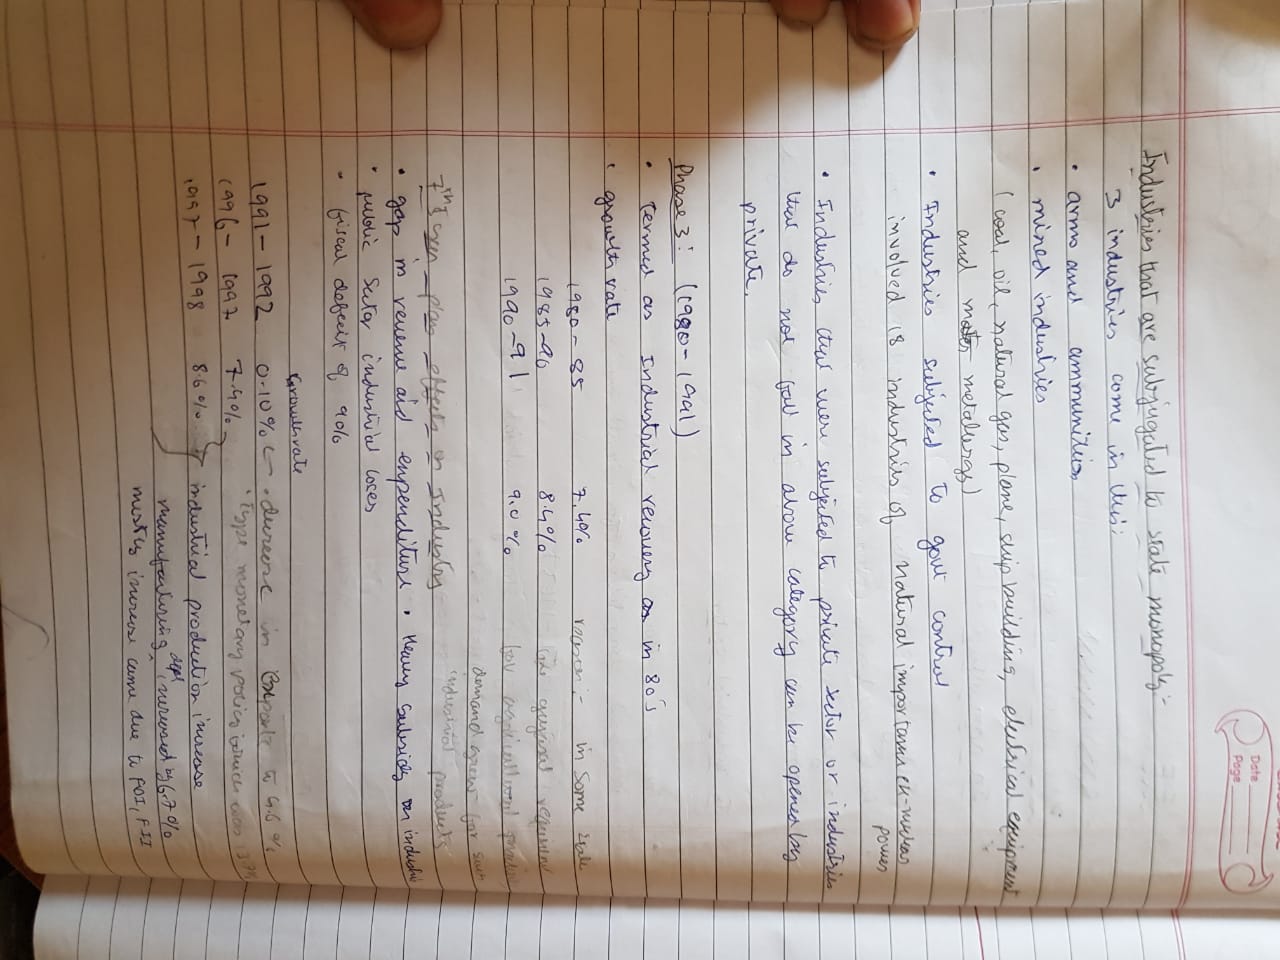 Date
Page
Industries that are subjugated to state monopoly:-
3 industries come in this:
• arms and ammunition
• mined industries
(coal, oil, natural gas, plane, ship building, electrical equipment
and metallergy)
• Industries subjected to govt control
involved 18 industries of natural importance
power
• Industries that were subjected to private sector or industries
that do not fall in above category can be opened by
private.
Phase 3: (1980-1991)
• termed as Industrial recovery as in 80's
• growth rate
1980-85 7.4% in some state
1985-90 8.4%
1990-91 9.0% for
demand grew for such
industrial products
7th 5 year plan effects on Industry
• gap in revenue aid expenditure • Heavy subsidy on
• public sector industrial loses
• fiscal deficit of 9%
Growth rate
1991-1992 0.10% ← decrease in to
1996-1997 7.4% monetary policy
1997-1998 8.6% industrial production increase
manufacturing dept increased by 6.7%
increase came due to FDI, FII